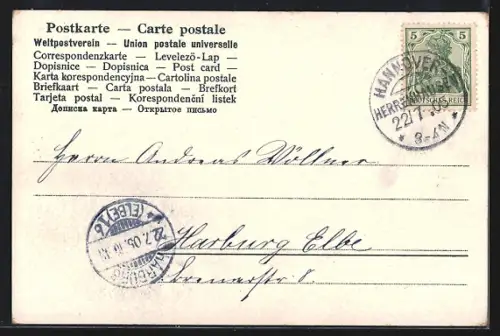 Postkarte — Carte postale
Weltpostverein — Union postale universelle
Correspondenzkarte — Levelező-Lap —
Dopisnice — Dopisnica — Post card —
Karta korespondencyjna — Cartolina postale
Briefkaart — Carta postala — Brefkort
Tarjeta postal — Korespondenční lístek
Дописна карта — Открытое письмо
5 5
DEUTSCHES REICH
HANNOVER
22/7
* 3-4N *
Herrn Andreas Wöllner
Harburg Elbe
Bremerstr 8.
HARBURG
22.7.05.
* (ELBE) 1 b